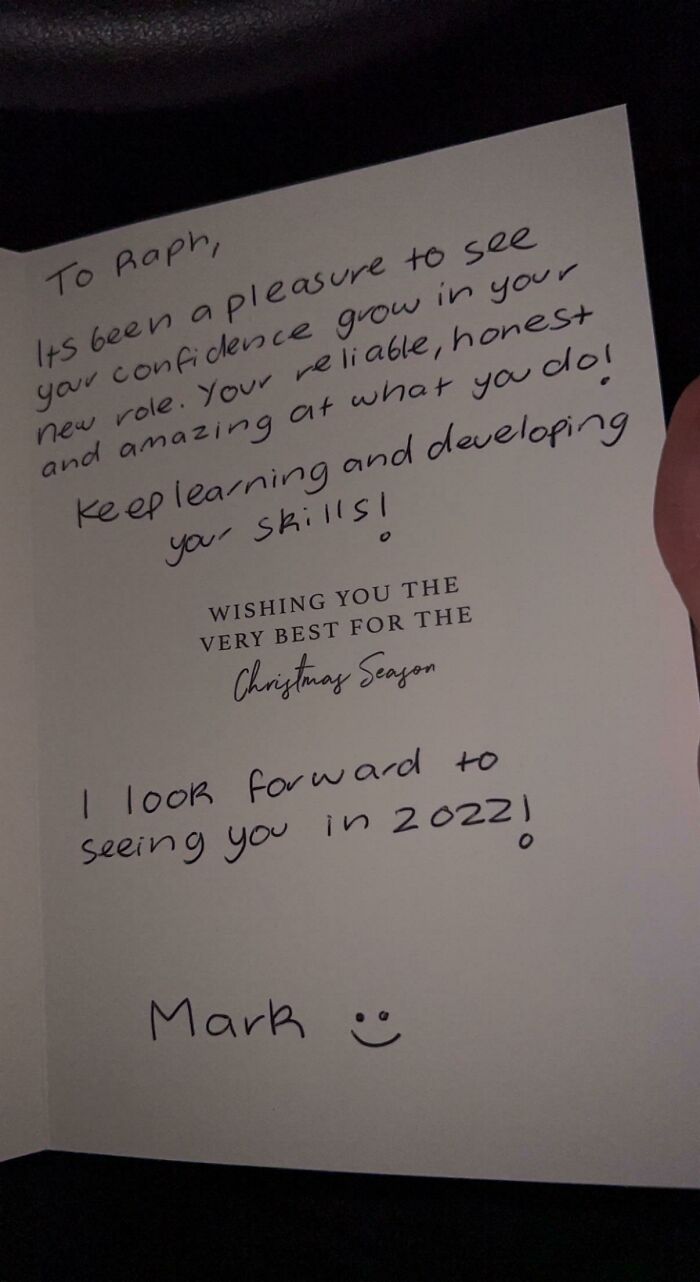 To Raph,
Its been a pleasure to see
your confidence grow in your
new role. Your reliable, honest
and amazing at what you do!
Keep learning and developing
your skills!
WISHING YOU THE
VERY BEST FOR THE
Christmas Season
I look forward to
seeing you in 2022!
Mark :)